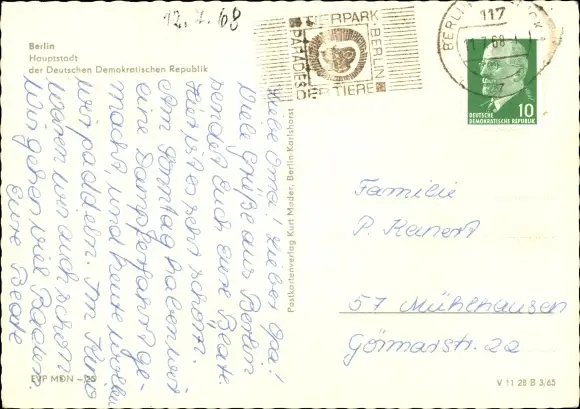 12.7.68
Berlin
Hauptstadt
der Deutschen Demokratischen Republik
TIERPARK BERLIN
PARADIES DER TIERE
BERLIN
117
7.68
10
DEUTSCHE
DEMOKRATISCHE REPUBLIK
Liebe Oma! Lieber Opa!
Viele Grüße aus Berlin
sendet Euch Eure Beate.
Hier ist es sehr schön.
Am Sonntag haben wir
eine Dampferfahrt ge-
macht, und heute wollen
wir paddeln. Im Kino
waren wir auch schon
Wir gehen viel Baden.
Eure Beate
Postkartenverlag Kurt Mader, Berlin-Karlshorst
Familie
P. Kanert
57 Mühlhausen
Görmarstr. 22
EVP MDN –,20
V 11 28 B 3/65